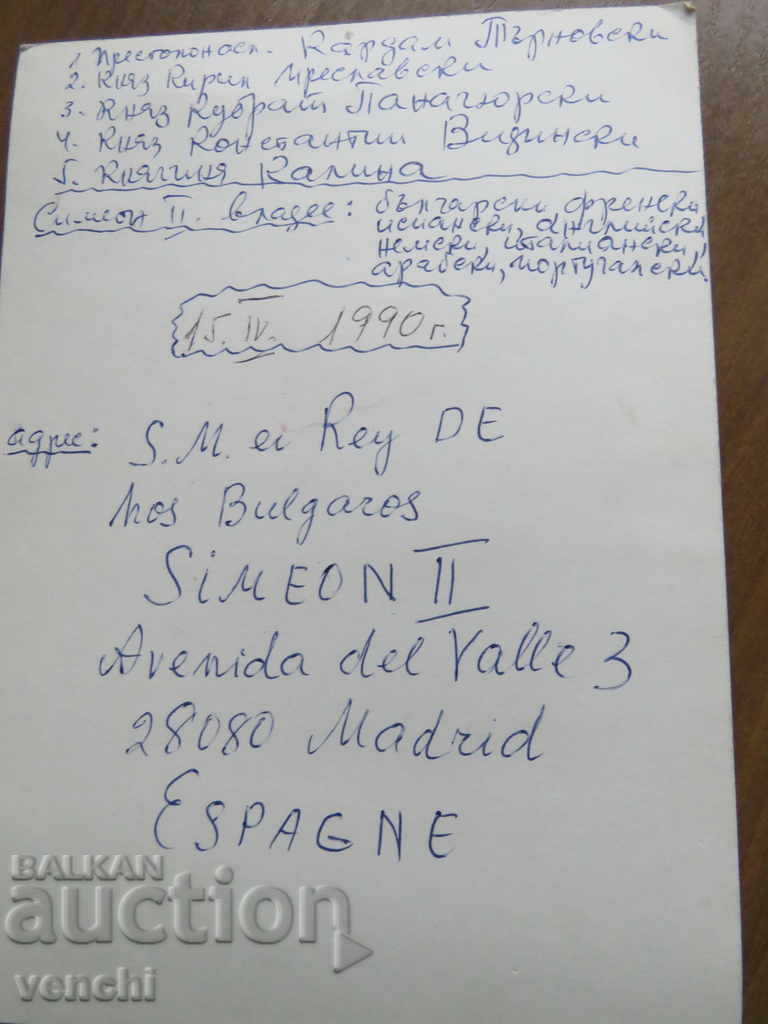 1. Престолонасл. Кардам Търновски
2. Княз Кирил Преславски
3. Княз Кубрат Панагюрски
4. Княз Константин Видински
5. Княгиня Калина
Симеон II. владее: български френски
испански, английски,
немски, италиански,
арабски, португалски.
15. IV. 1990 г.
адрес: S. M. el Rey DE
los Bulgaros
SIMEON II
Avenida del Valle 3
28080 Madrid
ESPAGNE
BALKAN
auction
venchi